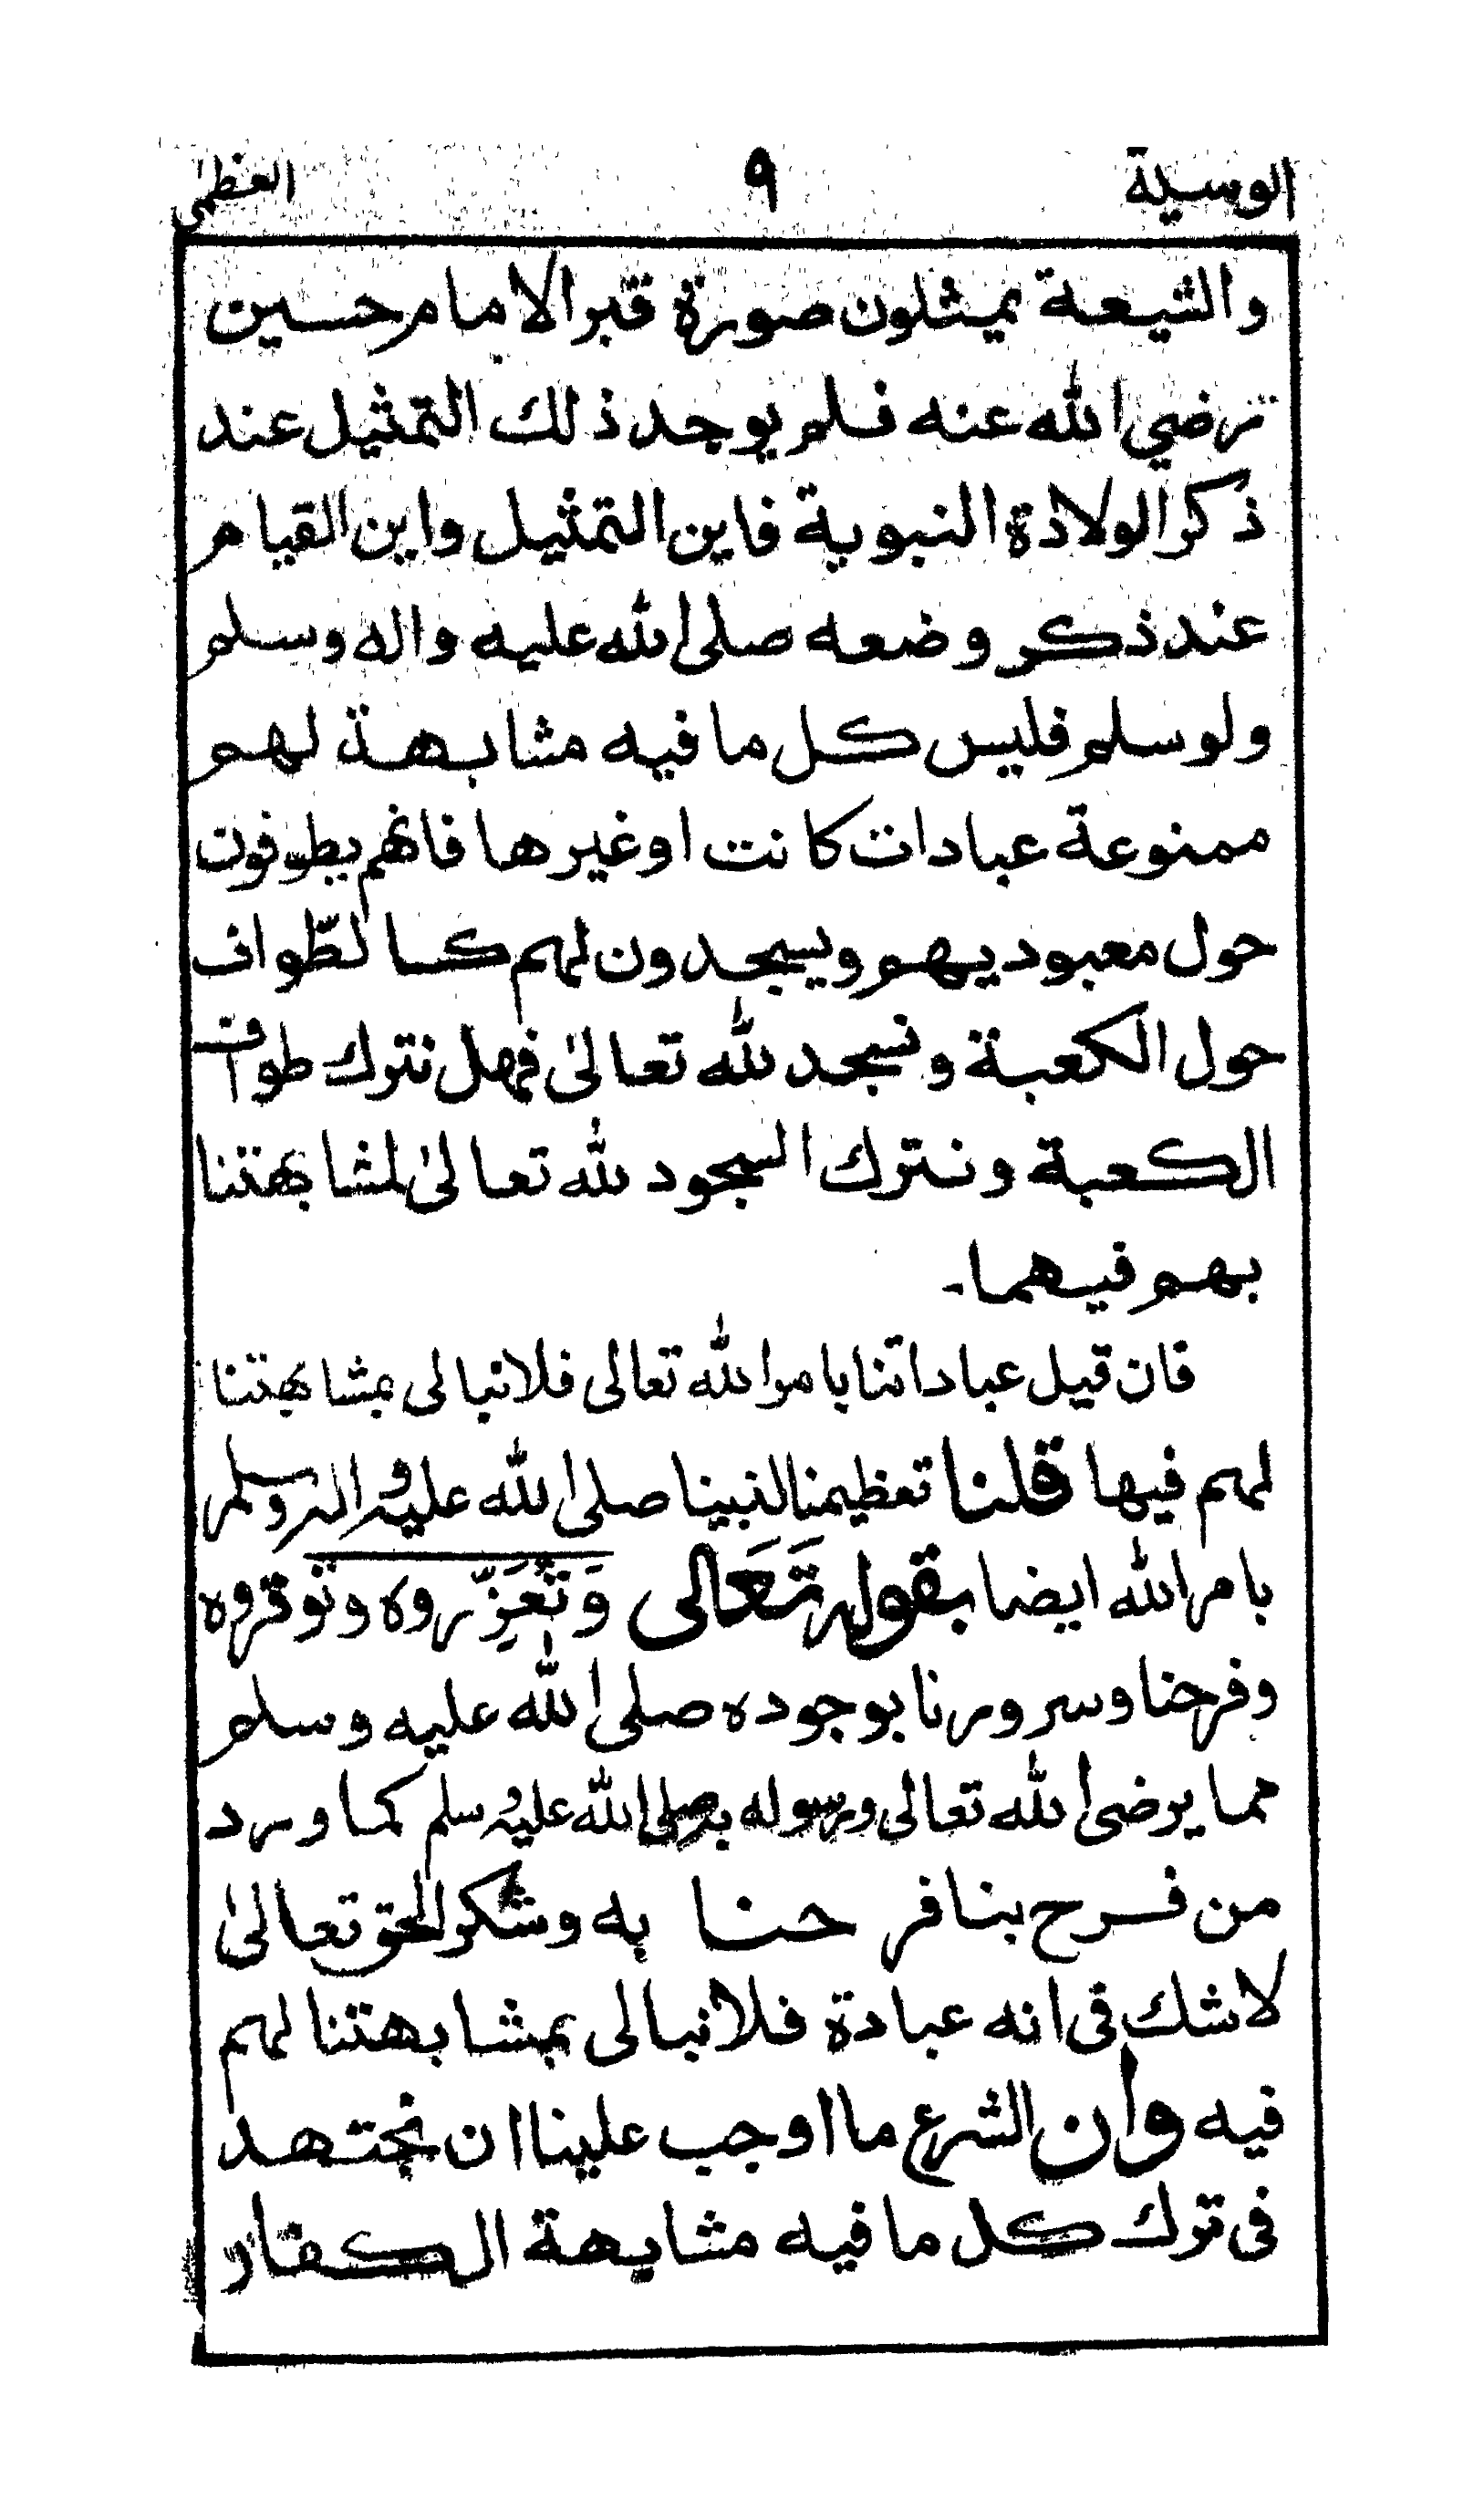 الوسيلة ٩ العظمى
والشيعة يمثلون صورة قبر الامام حسين
رضي الله عنه فلم يوجد ذلك التمثيل عند
ذكر الولادة النبوية فاين التمثيل واين القيام
عند ذكر وضعه صلى الله عليه واله وسلم
ولو سلم فليس كل ما فيه مشابهة لهم
ممنوعة عبادات كانت اوغيرها فانهم يطوفون
حول معبوديهم ويسجدون لهم كالطّواف
حول الكعبة ونسجد لله تعالىٰ فهل نترك طواف
الكعبة ونترك السجود لله تعالىٰ لمشابهتنا
بهم فيهما۔
فان قيل عباداتنا بامر الله تعالى فلا نبالى بمشابهتنا
لهم فيها قلنا تعظيمنا لنبينا صلى الله عليه واله وسلم
بامر الله ايضا بقوله تَعَالى وَتُعَزِّروه وتوقروه
وفرحنا وسرورنا بوجوده صلى الله عليه وسلم
مما يرضى الله تعالى ورسوله به صلى الله عليه وسلم كما ورد
من فرح بنا فرحنا به وشكر الحق تعالىٰ
لاشك فى انه عبادة فلا نبالى بمشابهتنا لهم
فيه وان الشرع ما اوجب علينا ان نجتهد
فى ترك كل ما فيه مشابهة الكفار